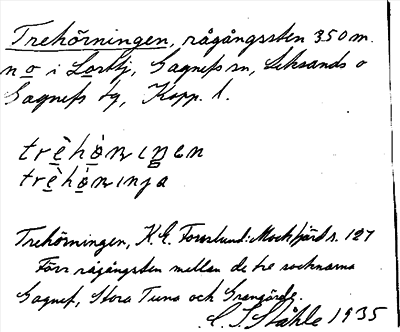 Trehörningen, rågångssten 350 m.
n o i Lortbj, Gagnefs sn, Leksands o
Gagnefs tg, Kopp. l.
trèhònιŋen
trèhònιnja
Trehörningen, K.E. Forslund: Mockfjärd s. 127
Förr rågångssten mellan de tre socknarna
Gagnef, Stora Tuna och Grangärde.
C. I. Ståhle 1935